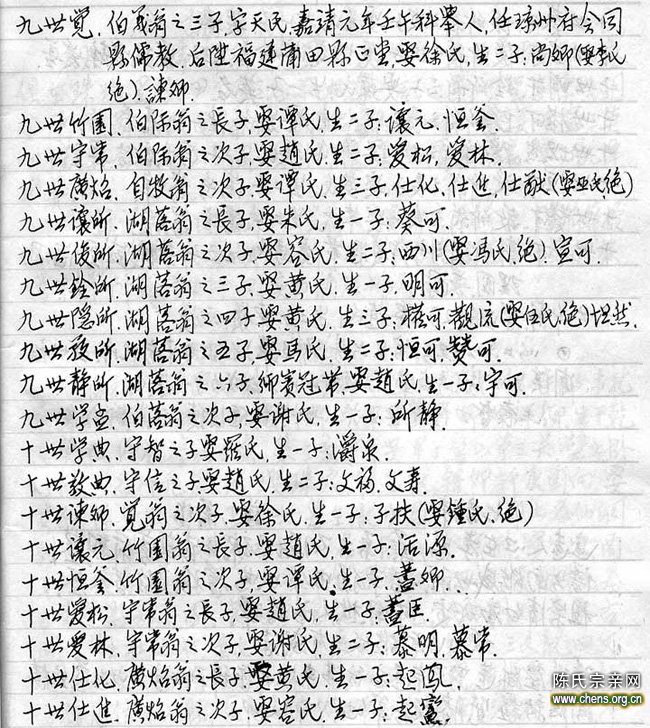 九世覚,伯義翁之三子,字天民,嘉靖元年壬午科舉人,任琼州府会同
縣儒教,后陞福建莆田縣正堂,娶徐氏,生二子:尚卿(娶李氏
绝).諫卿.
九世竹園,伯际翁之長子,娶谭氏,生二子:讓元,恒釜.
九世宇常,伯际翁之次子,娶趙氏,生二子,爱松,爱林.
九世廣焰,自牧翁之次子娶谭氏,生三子,仕化,仕進,仕猷(娶亚氏,绝)
九世讓所,湖蓓翁之長子,娶朱氏,生一子:葵可.
九世俊所,湖蓓翁之次子,娶容氏,生二子:西川(娶馮氏,绝).宣可.
九世銓所,湖蓓翁之三子,娶黄氏,生一子,明可.
九世隐所,湖蓓翁之四子,娶黄氏,生三子:橫可,觀流(娶伍氏,绝)坦然.
九世 所,湖蓓翁之五子,娶馬氏,生二子:恒可,赞可.
九世静所,湖蓓翁之六子,鄉賓冠带,娶趙氏,生一子:宇可.
九世学孟,伯蓓翁之次子,娶谢氏,生一子:所静.
十世学典,守智之子娶羅氏,生一子:爵泉.
十世教典,守信之子娶趙氏,生二子:文福,文寿.
十世諫卿,覚翁之次子,娶徐氏,生一子:子扶(娶鍾氏,绝)
十世讓元,竹園翁之長子,娶趙氏,生一子:活源.
十世恒釜,竹園翁之次子,娶谭氏,生一子,蓋卿...
十世爱松,宇常翁之長子,娶趙氏,生一子:蓋匡.
十世爱林,宇常翁之次子,娶谢氏,生二子:慕明,慕常.
十世仕化,廣焰翁之長子,娶黄氏,生一子:起凤.
十世仕進,廣焰翁之次子,娶容氏,生一子:起鸞.
陈氏宗亲网
www.chens.org.cn